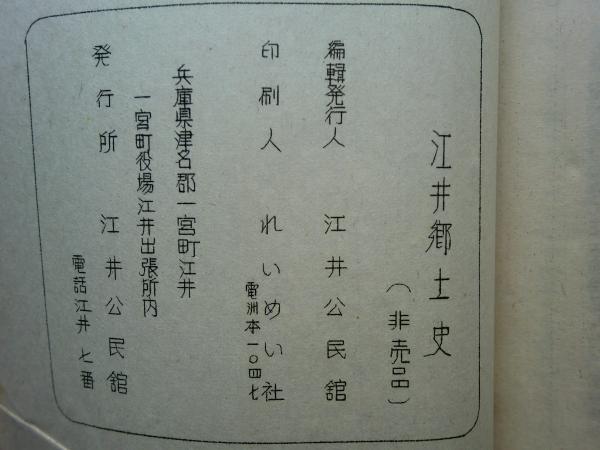 江井郷土史
(非売品)
編輯発行人 江井公民舘
印刷人 れいめい社
電洲本一〇四七
兵庫県津名郡一宮町江井
一宮町役場江井出張所内
発行所 江井公民舘
電話江井七番